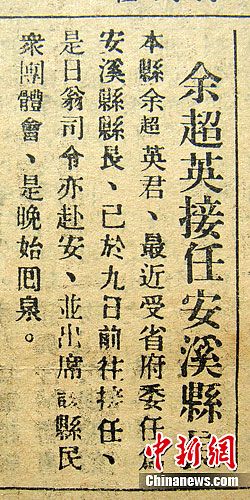 余超英接任安溪縣長
本縣余超英君、最近受省府委任爲
安溪縣縣長、已於九日前往接任、
是日翁司令亦赴安、並出席該縣民
衆團體會、是晚始囘泉。
中新网
Chinanews.com